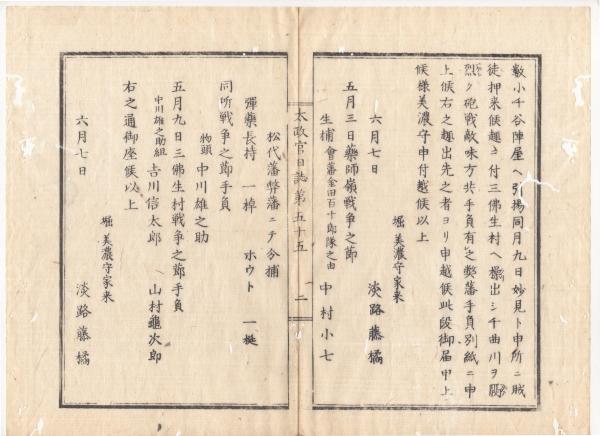 數小千谷陣屋ヘ引揚同月九日妙見ト申所ニ賊
徒押来候趣ニ付三佛生村ヘ操出シ千曲川ヲ隔
烈ク砲戦敵味方共手負有之弊藩手負別紙ニ申
上候右之趣出先之者ヨリ申越候此段御届申上
候様美濃守申付越候以上
堀美濃守家来
六月七日 淡路藤橘
五月三日藥師嶺戦争之節
生捕會藩金田百十郎隊之由 中村小七
太政官日誌第五十五 二
松代藩弊藩ニテ分捕
彈藥長持 一棹 ホウト 一挺
同所戦争之節手負
物頭 中川雄之助
五月九日三佛生村戦争之節手負
中川雄之助組 吉川信太郎 山村龜次郎
右之通御座候以上
堀美濃守家来
六月七日 淡路藤橘